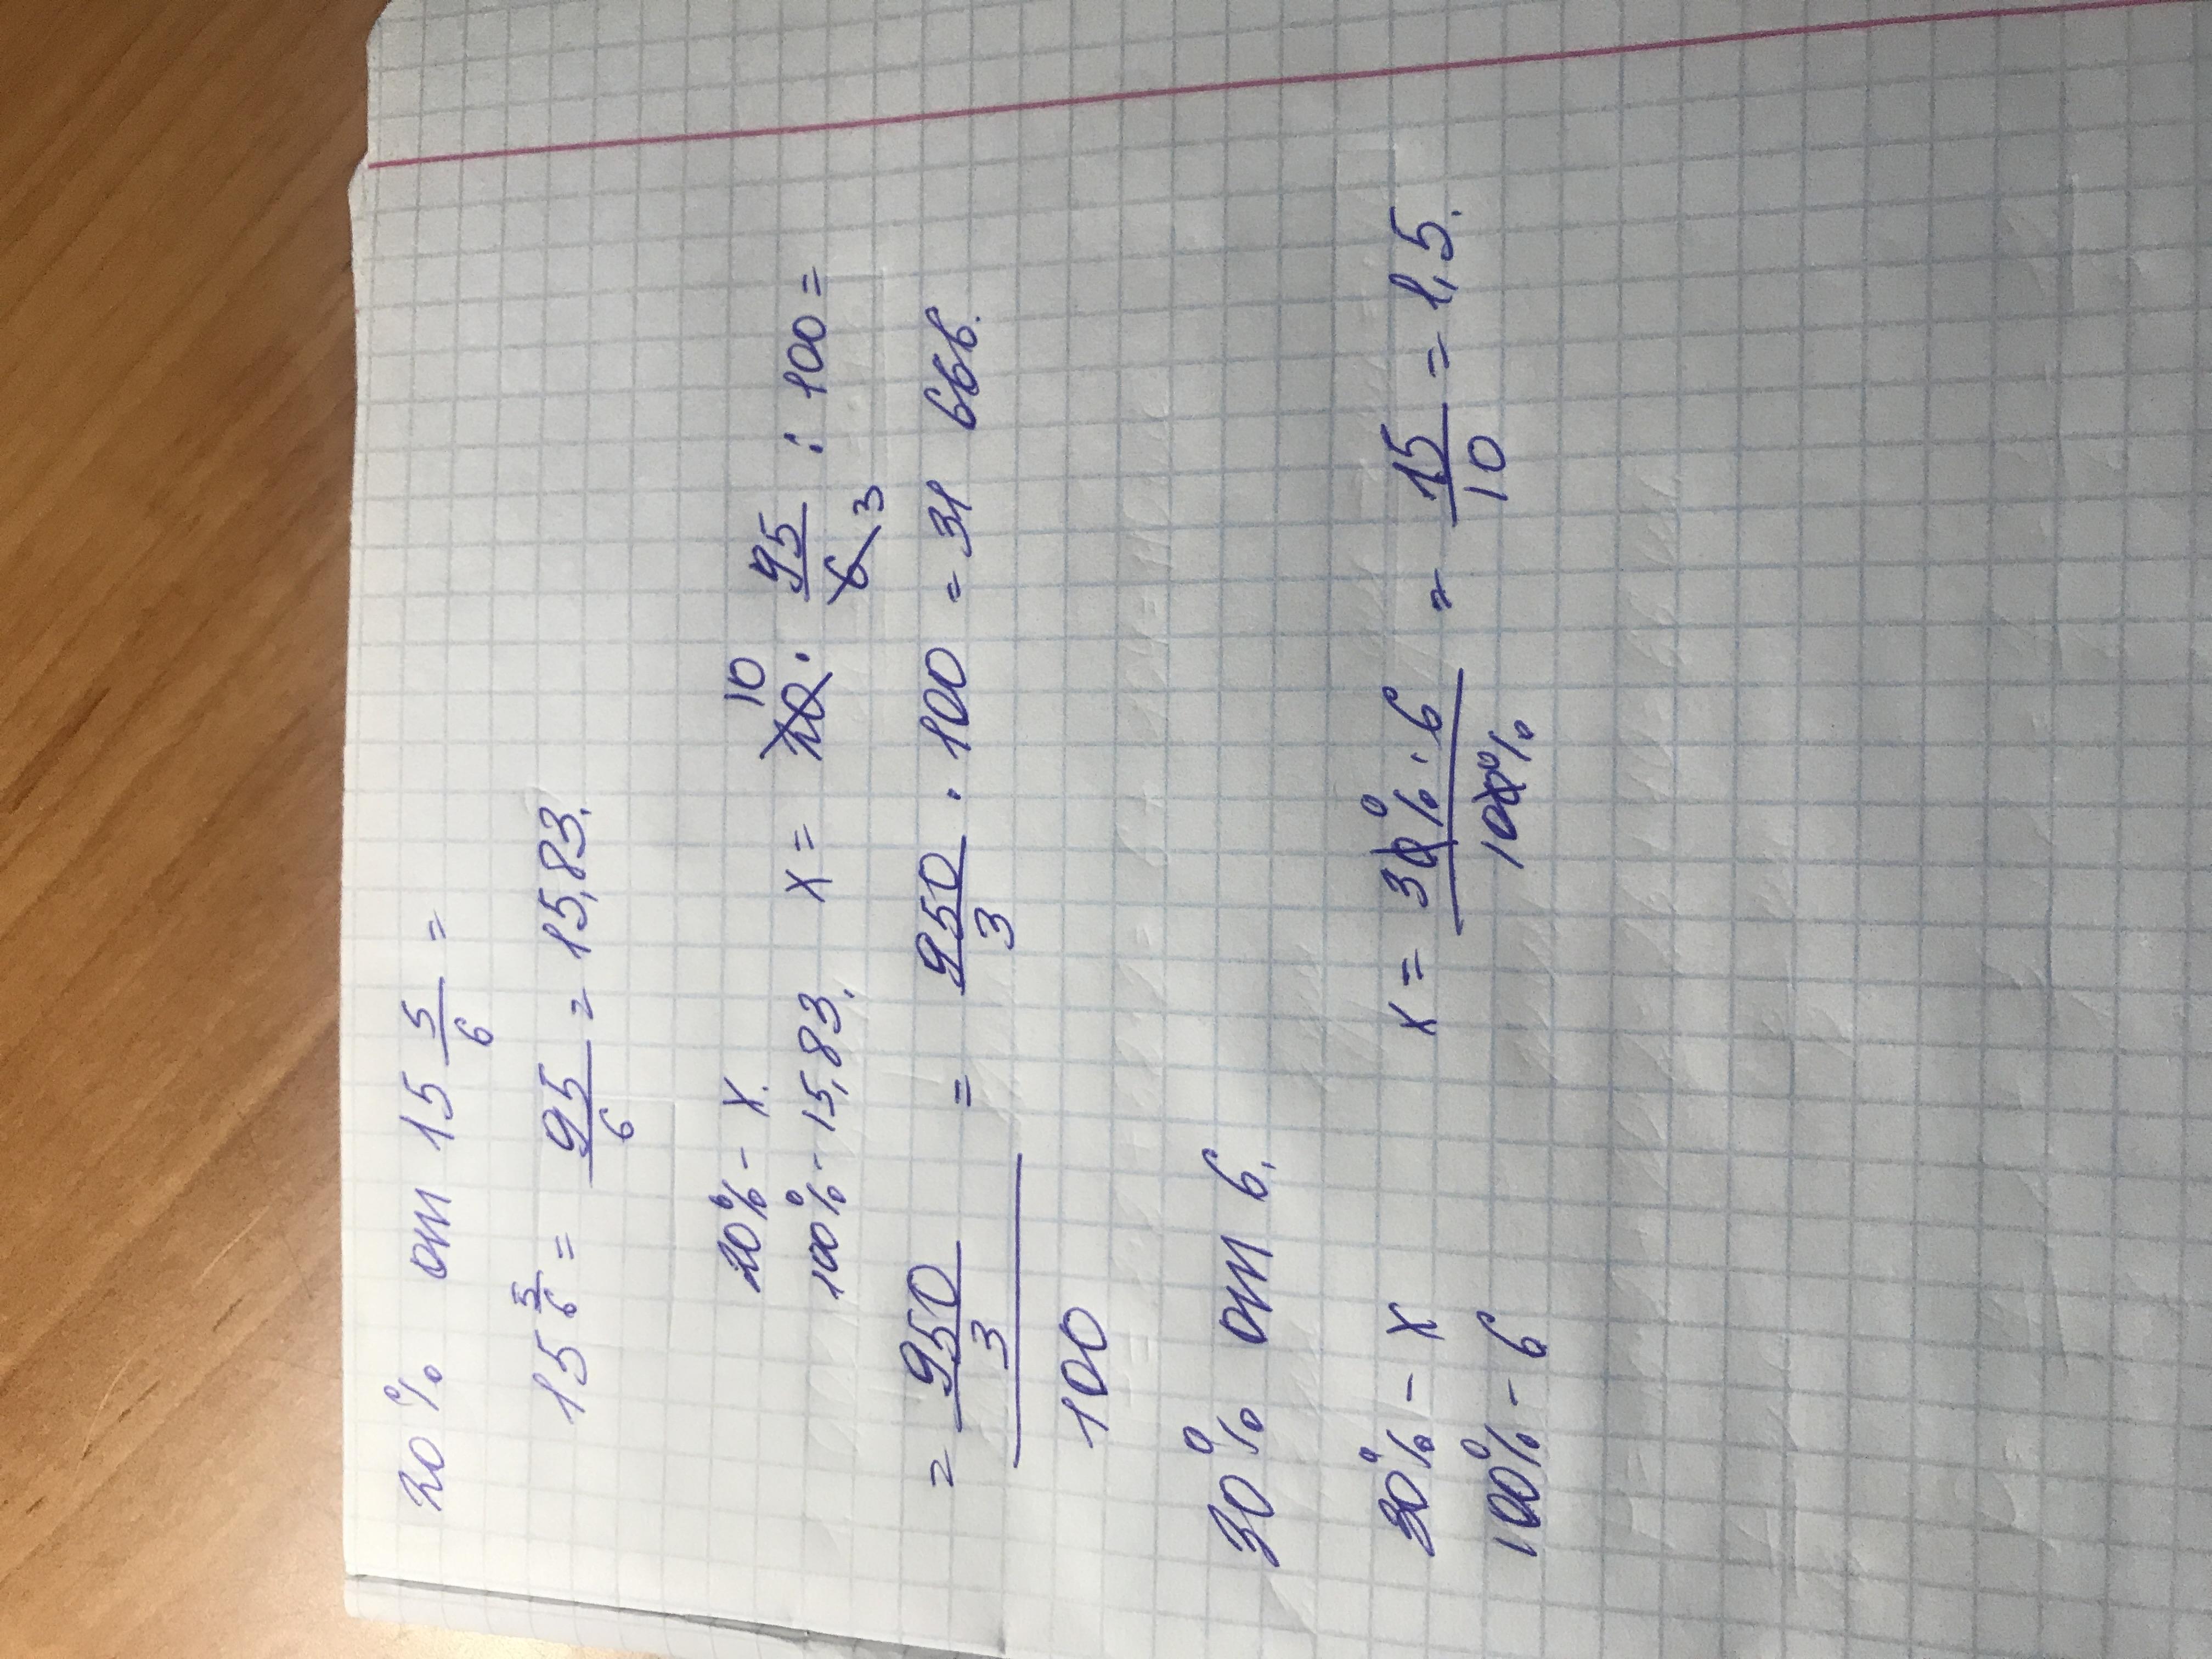 20% от 15 5/6 =
15 5/6 = 95/6 = 15,83.
20% - x.
100% - 15,83. x = 20 10 · 95/6 3 : 100 =
= 950/3 / 100 = 950/3 · 100 = 31 666.
30% от 6.
30% - x
100% - 6 x = 30% · 6 / 100% = 15/10 = 1,5.